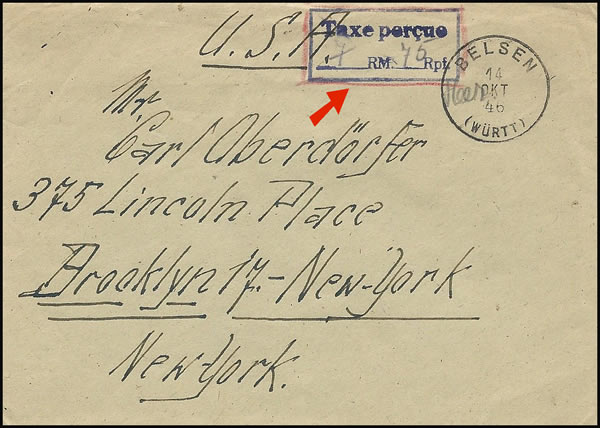 U.S.A.
Taxe perçue
RM 75 Rpf.
BELSEN
14
OKT
46
(WÜRTT)
Mr.
Carl Oberdörfer
375 Lincoln Place
Brooklyn 17.-New-York
New-York.